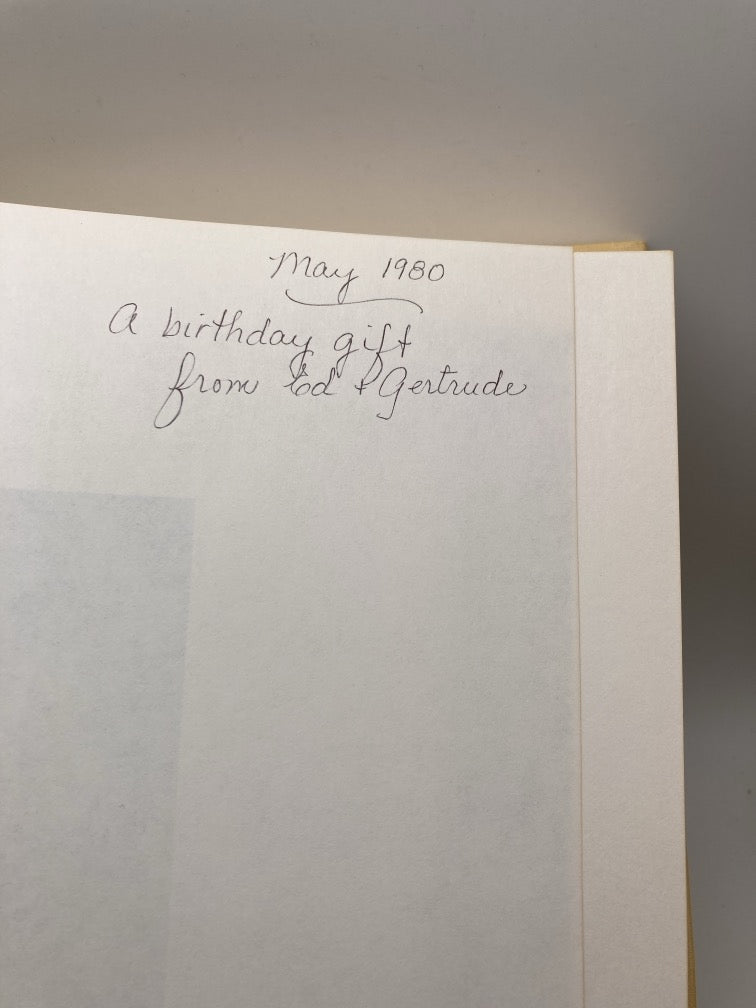 May 1980
A birthday gift
from Ed & Gertrude